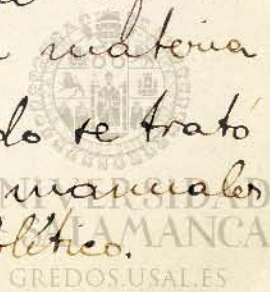 materia
do se trató
manuales
olítico.
VNIVERSIDAD
D SALAMANCA
GREDOS.USAL.ES